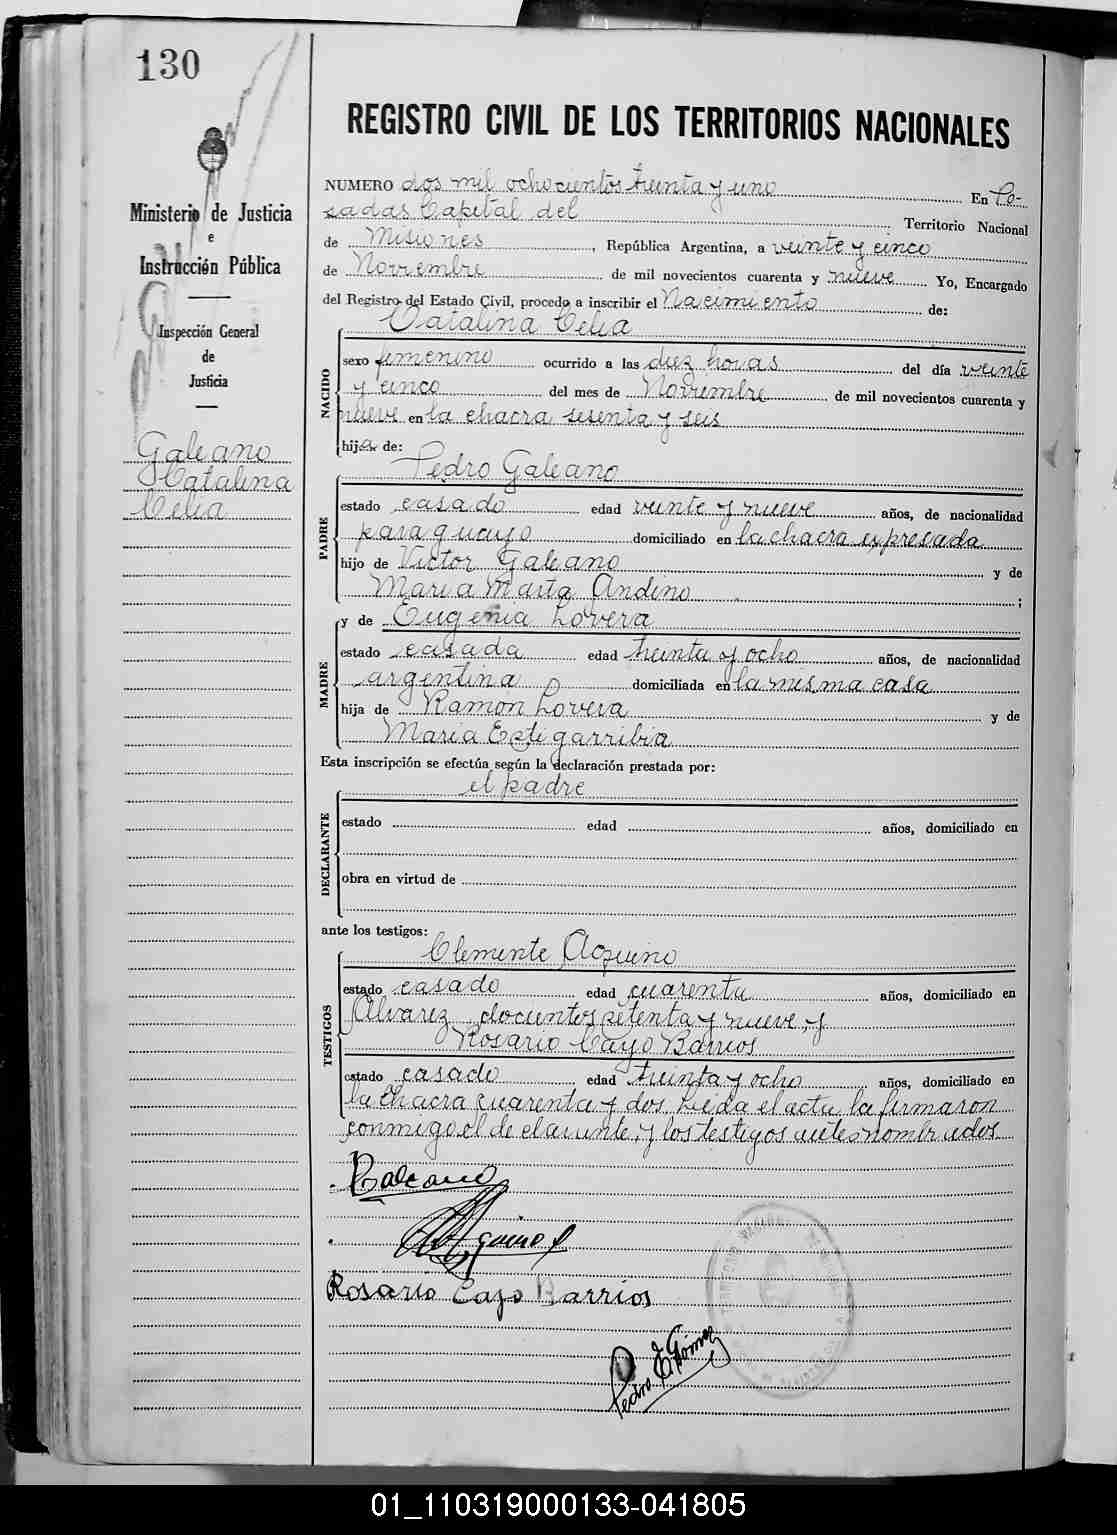 130
Ministerio de Justicia
e
Instrucción Pública
Inspección General
de
Justicia
Galeano
Catalina
Celia
REGISTRO CIVIL DE LOS TERRITORIOS NACIONALES
NUMERO dos mil ochocientos treinta y uno En Po-
sadas Capital del Territorio Nacional
de Misiones, República Argentina, a veinte y cinco
de Noviembre de mil novecientos cuarenta y nueve Yo, Encargado
del Registro del Estado Civil, procedo a inscribir el Nacimiento de:
NACIDO
Catalina Celia
sexo femenino ocurrido a las diez horas del día veinte
y cinco del mes de Noviembre de mil novecientos cuarenta y
nueve en la chacra sesenta y seis
hija de:
PADRE
Pedro Galeano
estado casado edad veinte y nueve años, de nacionalidad
paraguayo domiciliado en la chacra expresada
hijo de Victor Galeano y de
Maria Marta Andino ;
MADRE
y de Eugenia Lovera
estado casada edad treinta y ocho años, de nacionalidad
argentina domiciliada en la misma casa
hija de Ramón Lovera y de
Maria Estigarribia
Esta inscripción se efectúa según la declaración prestada por:
DECLARANTE
el padre
estado edad años, domiciliado en
obra en virtud de
ante los testigos:
TESTIGOS
Clemente Aquino
estado casado edad cuarenta años, domiciliado en
Alvarez docientos setenta y nueve, y
Rosario Cayo Barrios
estado casado edad treinta y ocho años, domiciliado en
la chacra cuarenta y dos. Leida el acta la firmaron
conmigo el declarante, y los testigos antes nombrados.
Galeano
Aquino
Rosario Cayo Barrios
Pedro E Gómez
01_110319000133-041805